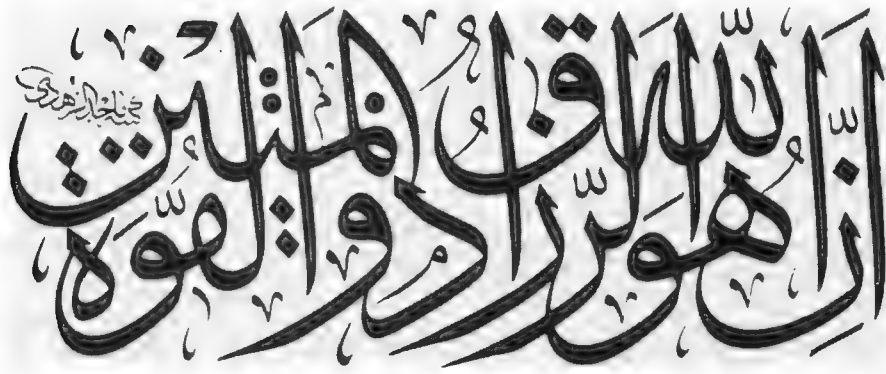 إِنَّ اللّٰهَ هُوَ الرَّزَّاقُ ذُو الْقُوَّةِ الْمَتِينُ